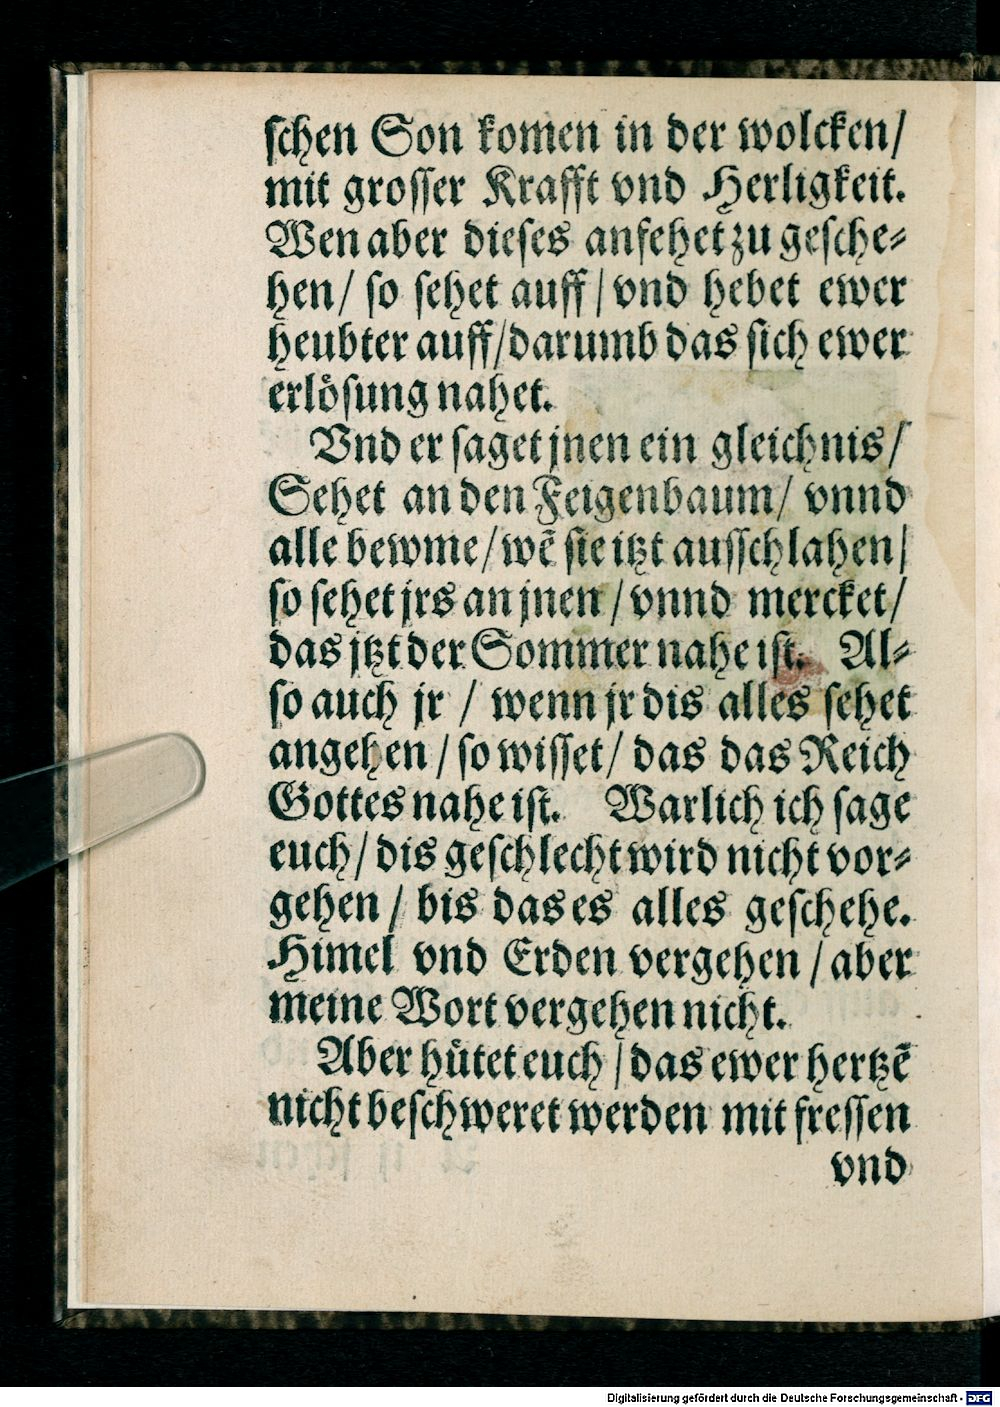 schen Son komen in der wolcken/
mit grosser Krafft vnd Herligkeit.
Wen aber dieses anfehet zu gesche⸗
hen/ so sehet auff/ vnd hebet ewer
heubter auff/ darumb das sich ewer
erlösung nahet.
Vnd er saget jnen ein gleichnis/
Sehet an den Feigenbaum/ vnnd
alle bewme/ wē sie itzt ausschlahen/
so sehet jrs an jnen/ vnnd mercket/
das jtzt der Sommer nahe ist. Al⸗
so auch jr / wenn jr dis alles sehet
angehen/ so wisset/ das das Reich
Gottes nahe ist. Warlich ich sage
euch/ dis geschlecht wird nicht vor⸗
gehen/ bis das es alles geschehe.
Himel vnd Erden vergehen/ aber
meine Wort vergehen nicht.
Aber hütet euch/ das ewer hertzē
nicht beschweret werden mit fressen
vnd
Digitalisierung gefördert durch die Deutsche Forschungsgemeinschaft - DFG